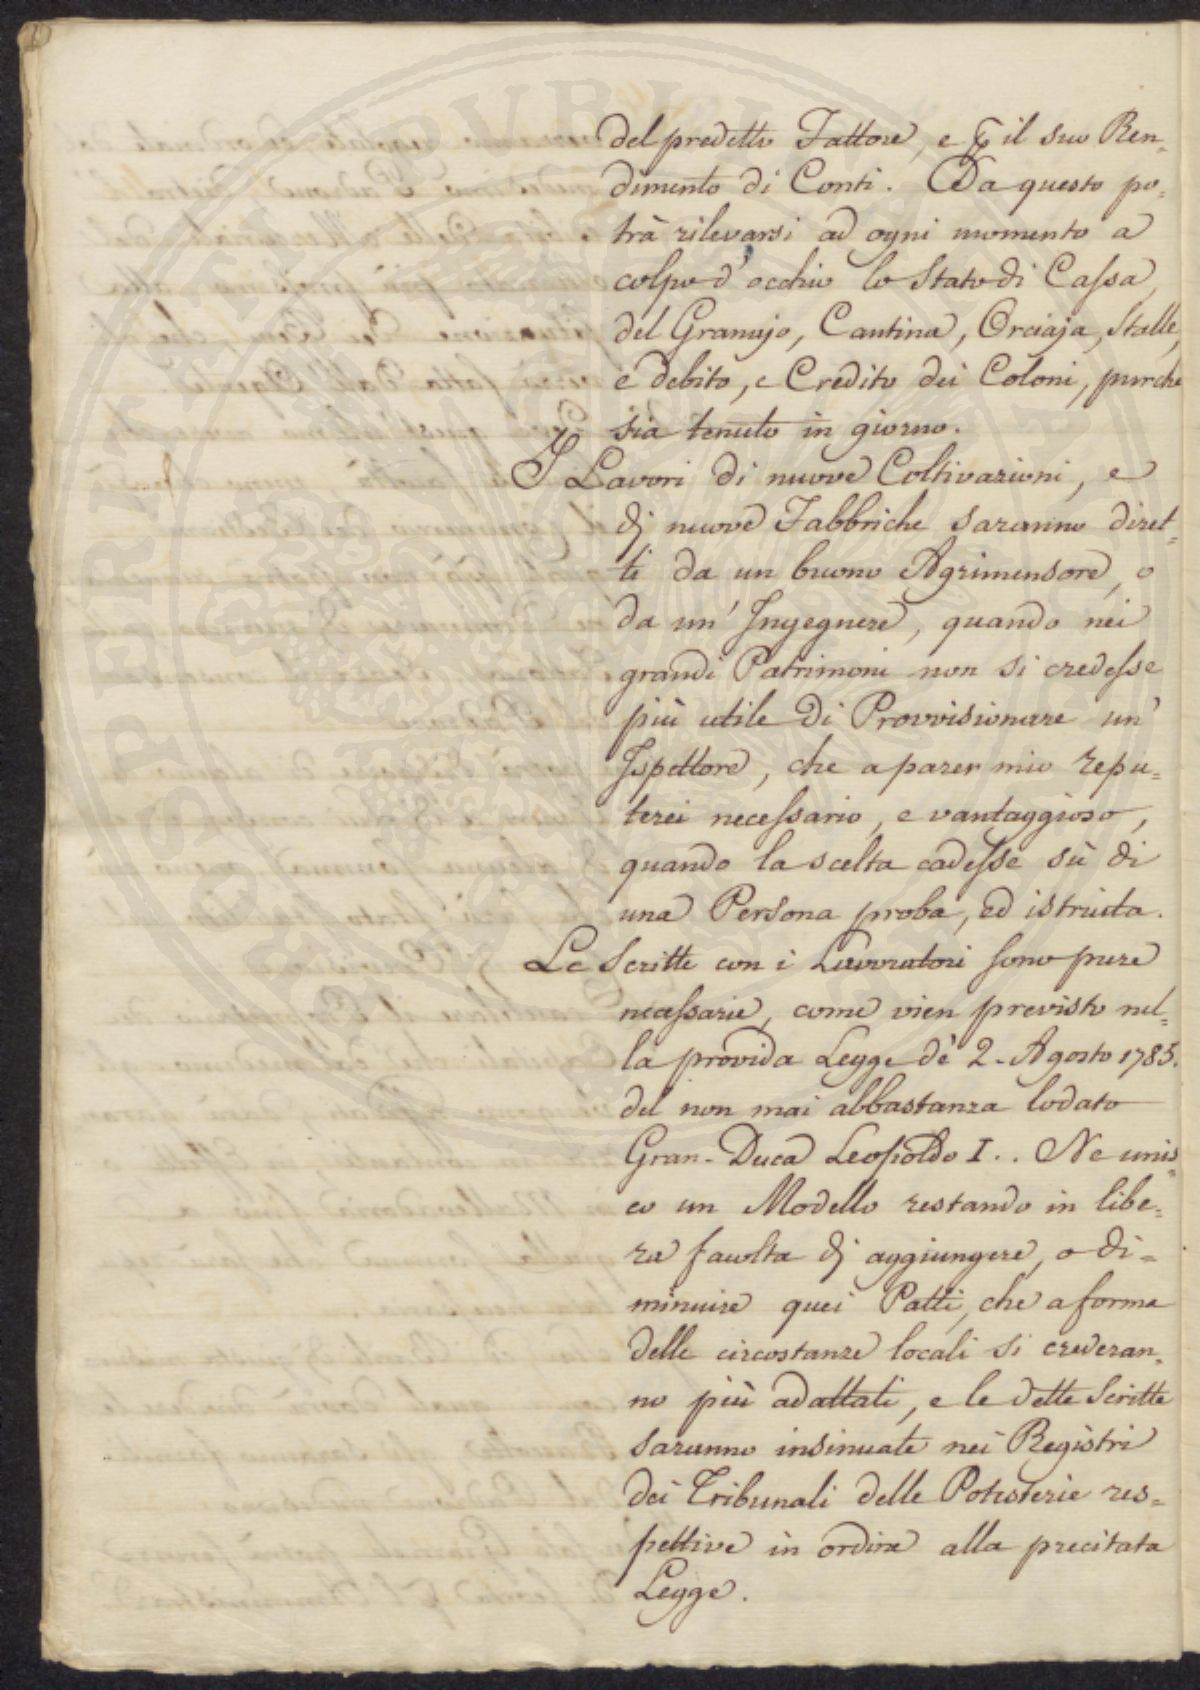 del predetto Fattore, e ꝑ il suo Ren=
dimento di Conti. Da questo po=
trà rilevarsi ad ogni momento a
colpo d'occhio lo Stato di Cassa,
del Granajo, Cantina, Orciaja, Stalle,
e debito, e Credito dei Coloni, purche
sia tenuto in giorno.
I Lavori di nuove Coltivazioni, e
di nuove Fabbriche saranno diret=
ti da un buono Agrimensore, o
da un' Ingegnere, quando nei
grandi Patrimoni non si credesse
più utile di Provvisionare un'
Ispettore, che a parer mio repu=
terei necessario, e vantaggioso,
quando la scelta cadesse sù di
una Persona proba, ed istruita.
Le Scritte con i Lavoratori sono pure
necessarie, come vien previsto nel=
la provida Legge de' 2. Agosto 1785.
del non mai abbastanza lodato
Gran-Duca Leopoldo I.. Ne unis=
co un Modello restando in libe=
ra facolta di aggiungere, o di=
minuire quei Patti, che a forma
delle circostanze locali si crederan=
no più adattati, e le dette Scritte
saranno insinuate nei Registri
dei Tribunali delle Potesterie res=
pettive in ordine alla precitata
Legge.